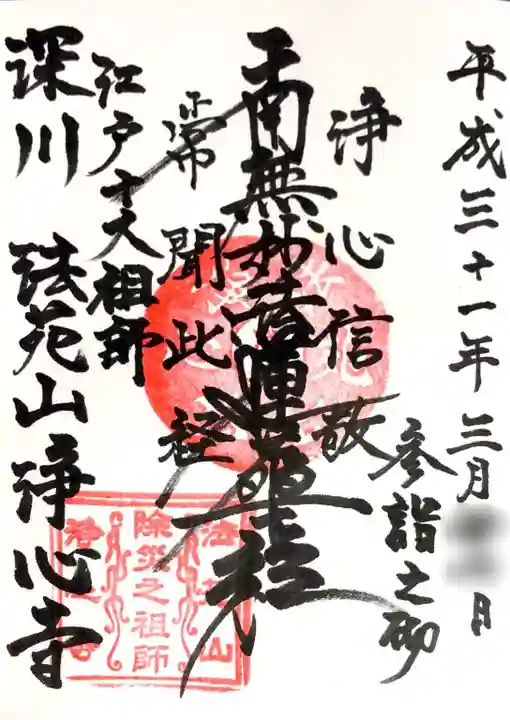 平成三十一年三月 日
参詣之砌
浄心信敬
南無妙法蓮華経
常聞此経
江戸十大祖師
深川 法苑山浄心寺
法苑山
除災之祖師
浄心寺